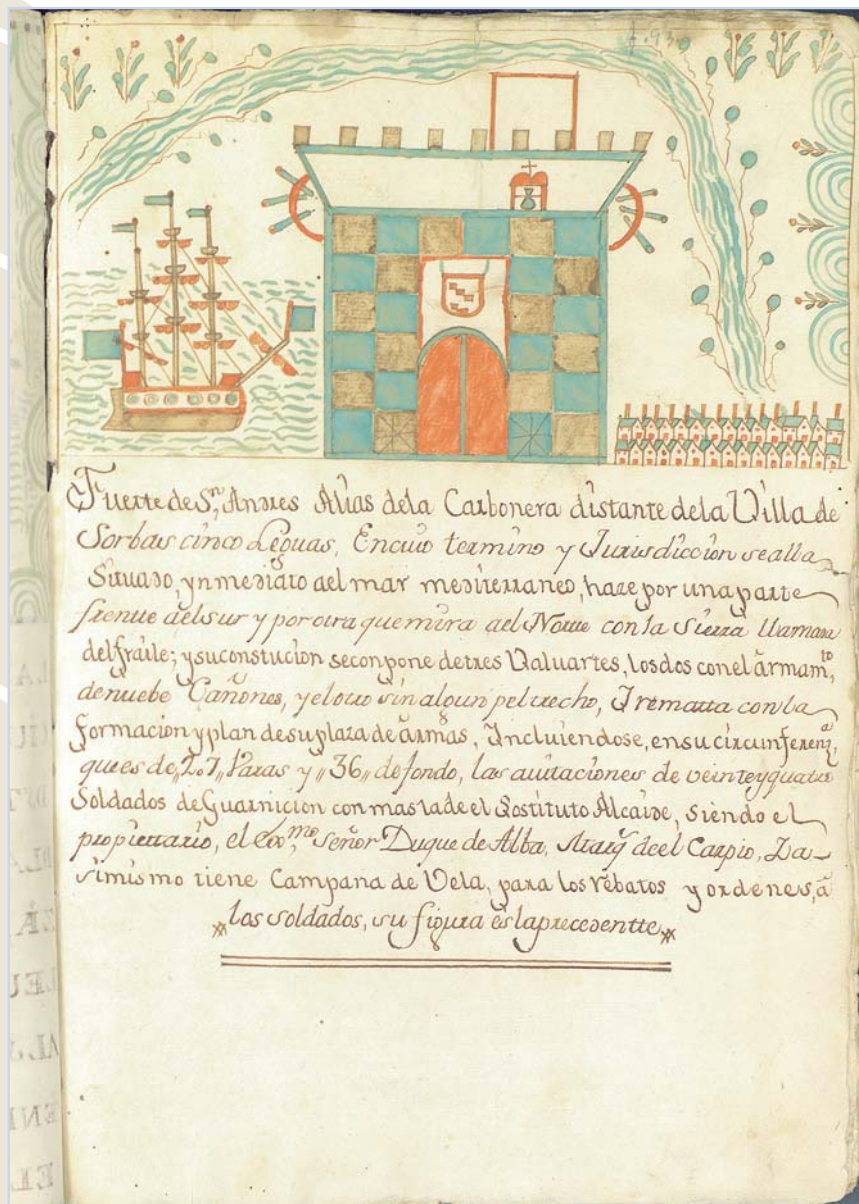 f. 93
Fuerte de Sn. Andres Alias dela Carbonera distante dela Villa de
Sorbas cinco Leguas, Encuio termino y Jurisdiccion se alla
Situado, ynmediato ael mar mediterraneo, haze por una parte
frente ael sur y por otra que mira ael Norte con la Sierra llamada
del fraile; y su constucion se conpone de tres Valuartes, los dos con el armamto,
de nuebe Cañones, y el otro sin algun peltrecho, Y rematta con la
formacion y plan de su plaza de armas, Yncluiendose, en su circunferenza,
que es de,, Varas y ,,36,, de fondo, las avitaciones de veinte y quatro
Soldados de Guarnicion con mas la de el Sostituto Alcaide, siendo el
propiettario, el Exmo, Señor Duque de Alba, Marq deel Carpio, Ya
simismo tiene Campana de Vela, para los rebatos y ordenes, a
los soldados, su figura es la precedentte